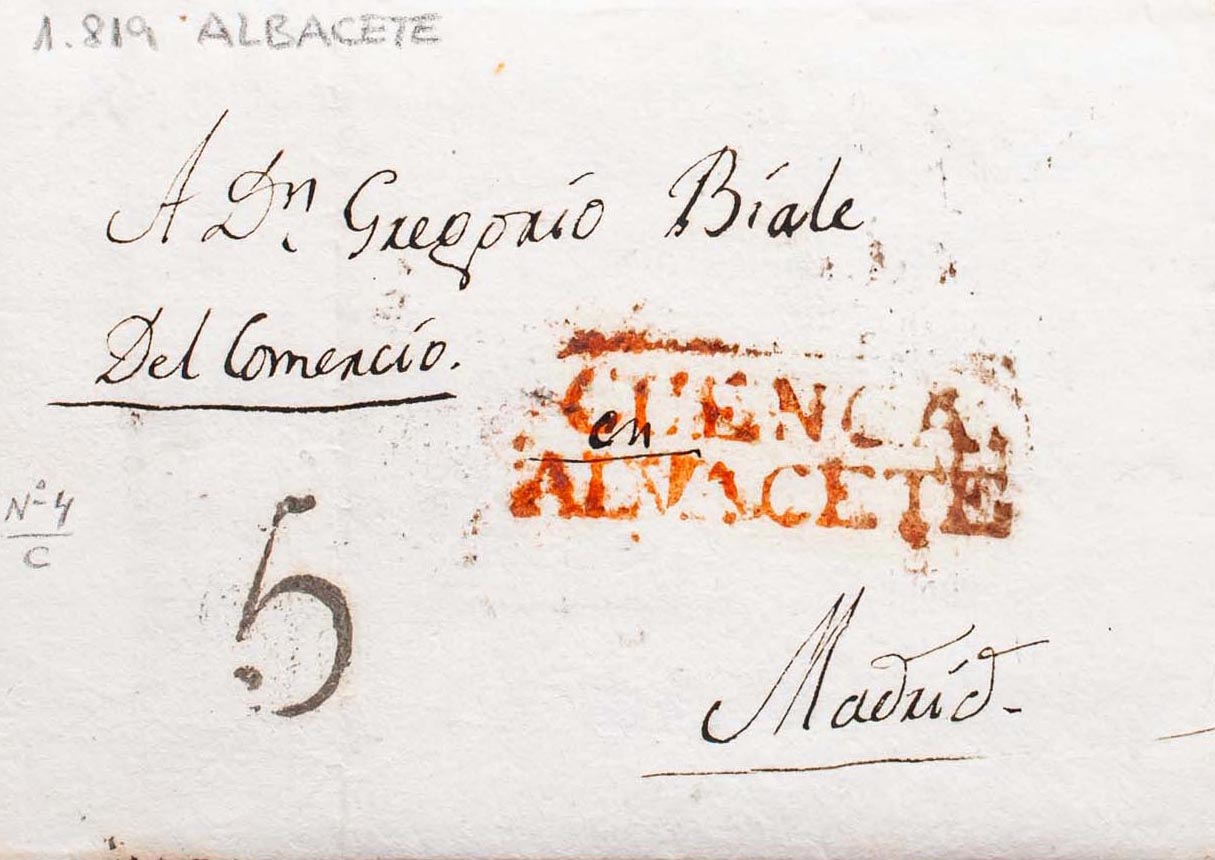 1.819 ALBACETE
A Dn Gregorio Biale
Del Comercio.
CUENCA
en
ALVACETE
Nº 4
C
5
Madrid.